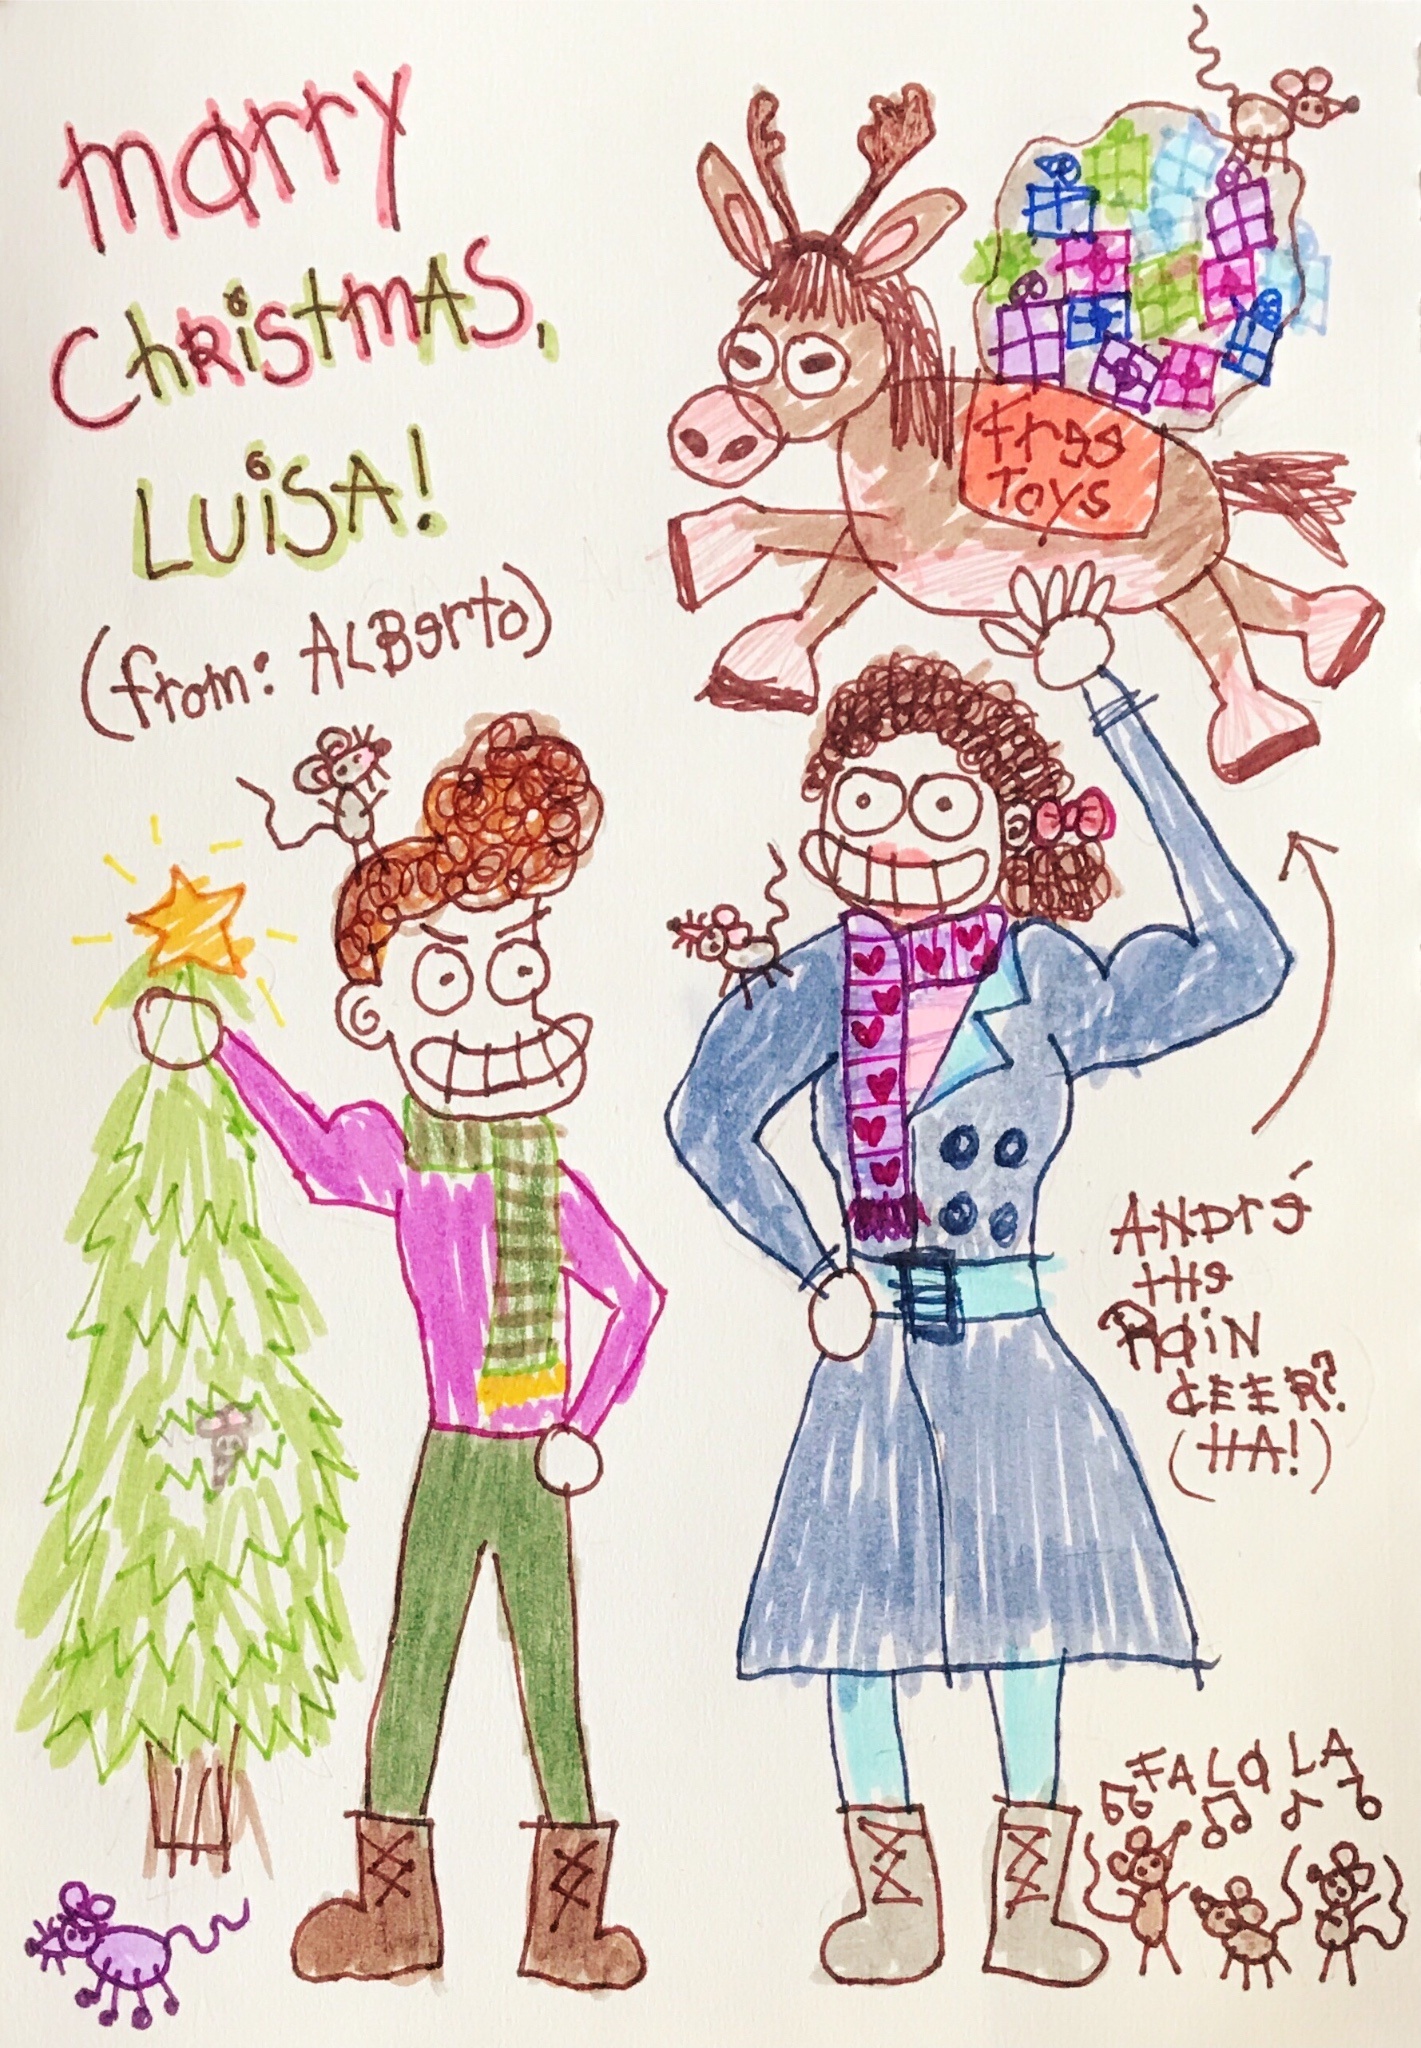 merry
ChRistmAS,
LUiSA!
(from: ALBerto)
Free
Toys
ANDré
the
ReiN
dEER?
(HA!)
FA LA LA